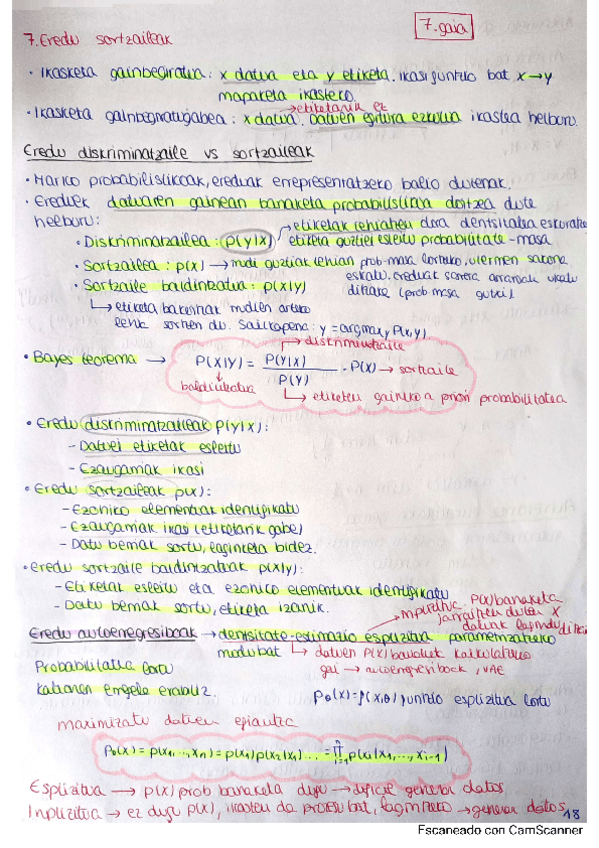 7. gaia
7. Eredu sortzaileak
· Ikasketa gainbegiratua: x datua eta y etiketa. ikasi funtzio bat x→y
mapaketa ikasteko.
→etiketarik ez
· Ikasketa gainbegiratugabea: x datua. Datuen egitura ezkutua ikastea helburu.
Eredu diskriminatzaile vs sortzaileak
· Marko probabilistikoak, ereduak errepresentatzeko balio dutenak.
· Ereduek datuaren gainean banaketa probabilistikoa doitzea dute
helburu:
· Diskriminatzailea: p(y|x) → etiketak lehiatzen dira dentsitatea eskuratzeko
etiketa guztiei esleitu probabilitate-masa
· Sortzailea: p(x) → irudi guztiak lehian prob-masa lortzeko, ulermen sakona
eskatu. Ereduak sarrera arraroak ukatu
· Sortzaile baldintzatua: p(x|y)
ditzake (prob-masa gutxi)
↳ etiketa bakoitzak irudien arteko
lehia sortzen du. Sailkapena: y = argmax_y P(x,y).
→ diskriminatzaile
· Bayes teorema → P(X|Y) = P(Y|X) / P(Y) · P(X) → sortzaile
baldintzatua
↳ etiketen gaineko a priori probabilitatea
· Eredu diskriminatzaileak P(Y|X):
- Datuei etiketak esleitu
- Ezaugarriak ikasi
· Eredu sortzaileak p(x):
- Ezohiko elementuak identifikatu
- Ezaugarriak ikasi (etiketarik gabe)
- Datu berriak sortu, laginketa bidez.
· Eredu sortzaile baldintzatuak p(x|y):
- Etiketak esleitu eta ezohiko elementuak identifikatu
- Datu berriak sortu, etiketa izanik.
P(x) banaketa
jarraitzen duten x
datuak
Eredu autoerregresiboak → dentsitate-estimazio esplizitua parametrizatzeko
modu bat ↳ datuen P(x) banaketak kalkulatzeko
gai → autoerregresiboak, VAE
Probabilitatea lortu
katearen erregela erabiliz.
Pθ(x) = f(x,θ) funtzio esplizitua lortu
maximizatu datuen egiantza
Pθ(x) = p(x1, ..., xn) = p(x1) p(x2|x1) ... = ∏ⁿᵢ₌₁ p(xi|x1, ..., xi-1)
Esplizitua → p(x) prob banaketa dugu → dificil generar datos
Inplizitua → ez dugu p(x), ikasten da prozesu bat, laginketa → generar datos
18
Escaneado con CamScanner